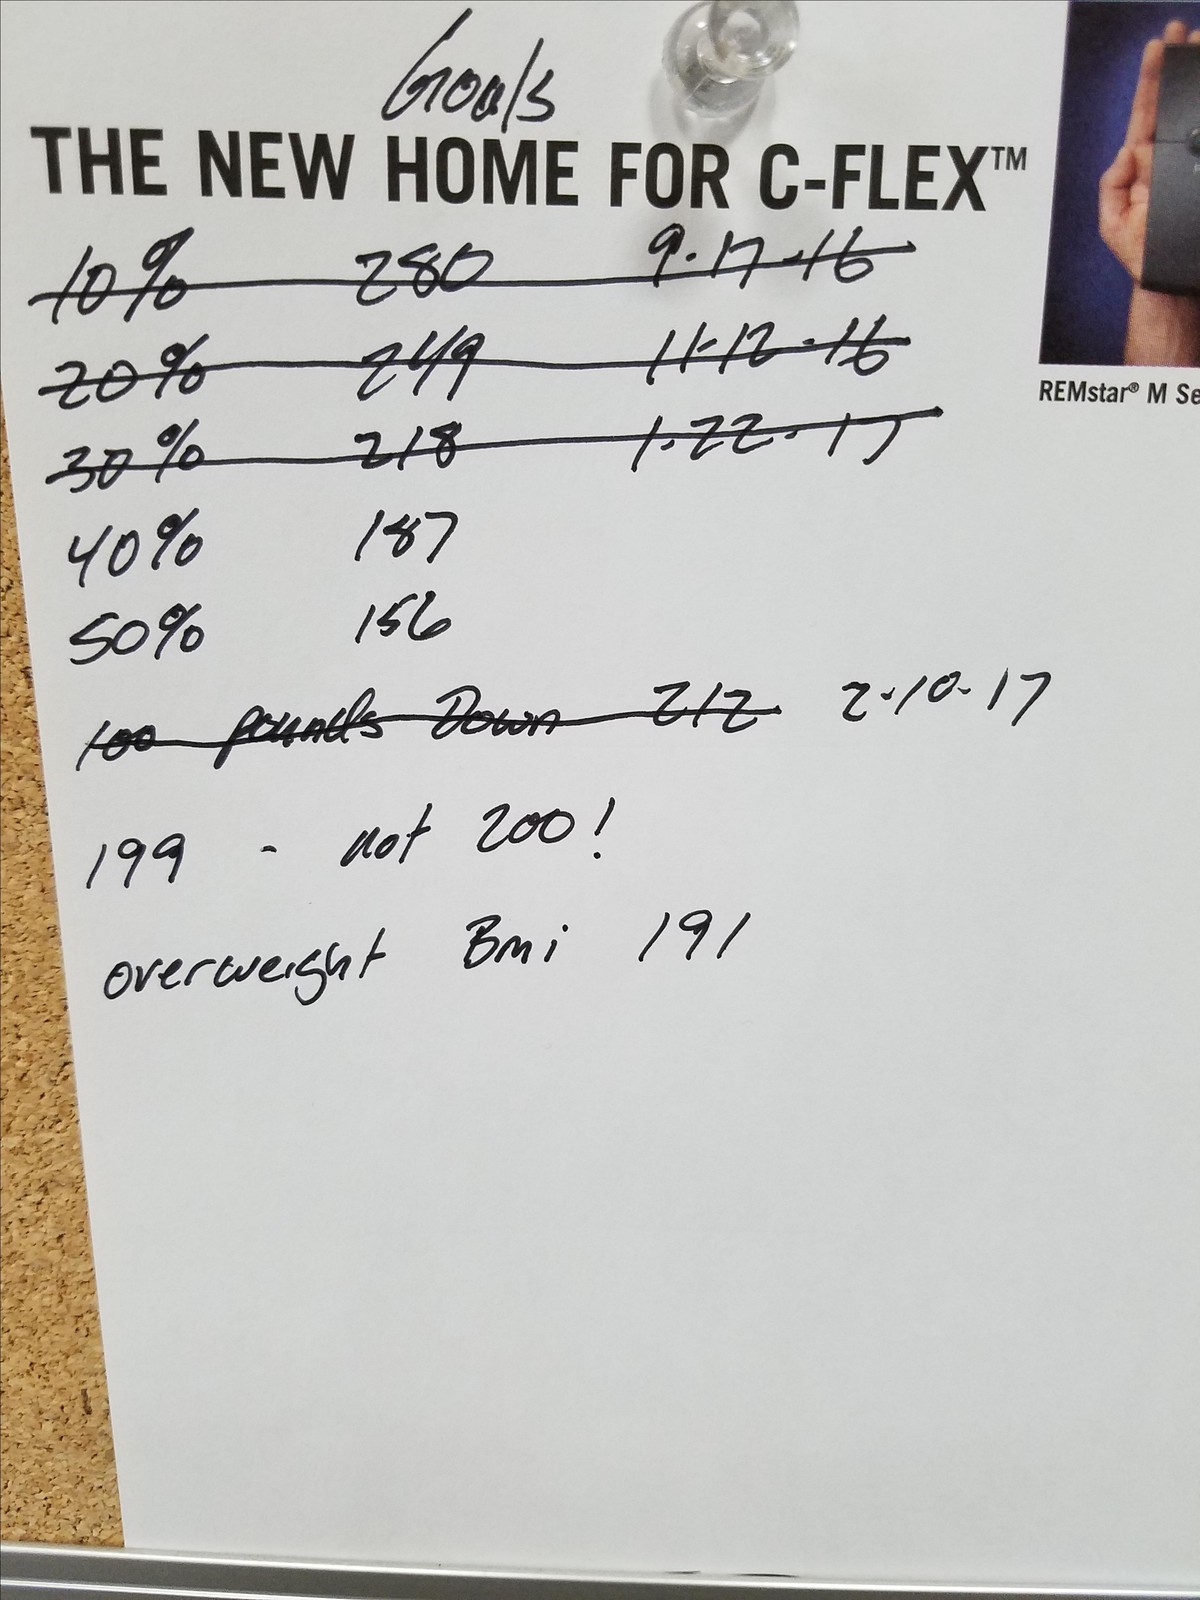 Goals
THE NEW HOME FOR C-FLEX™
10% 280 9-17-16
20% 249 11-12-16
30% 218 1-22-17
40% 187
50% 156
100 pounds Down 212 2-10-17
199 - not 200!
overweight Bmi 191
REMstar® M Se